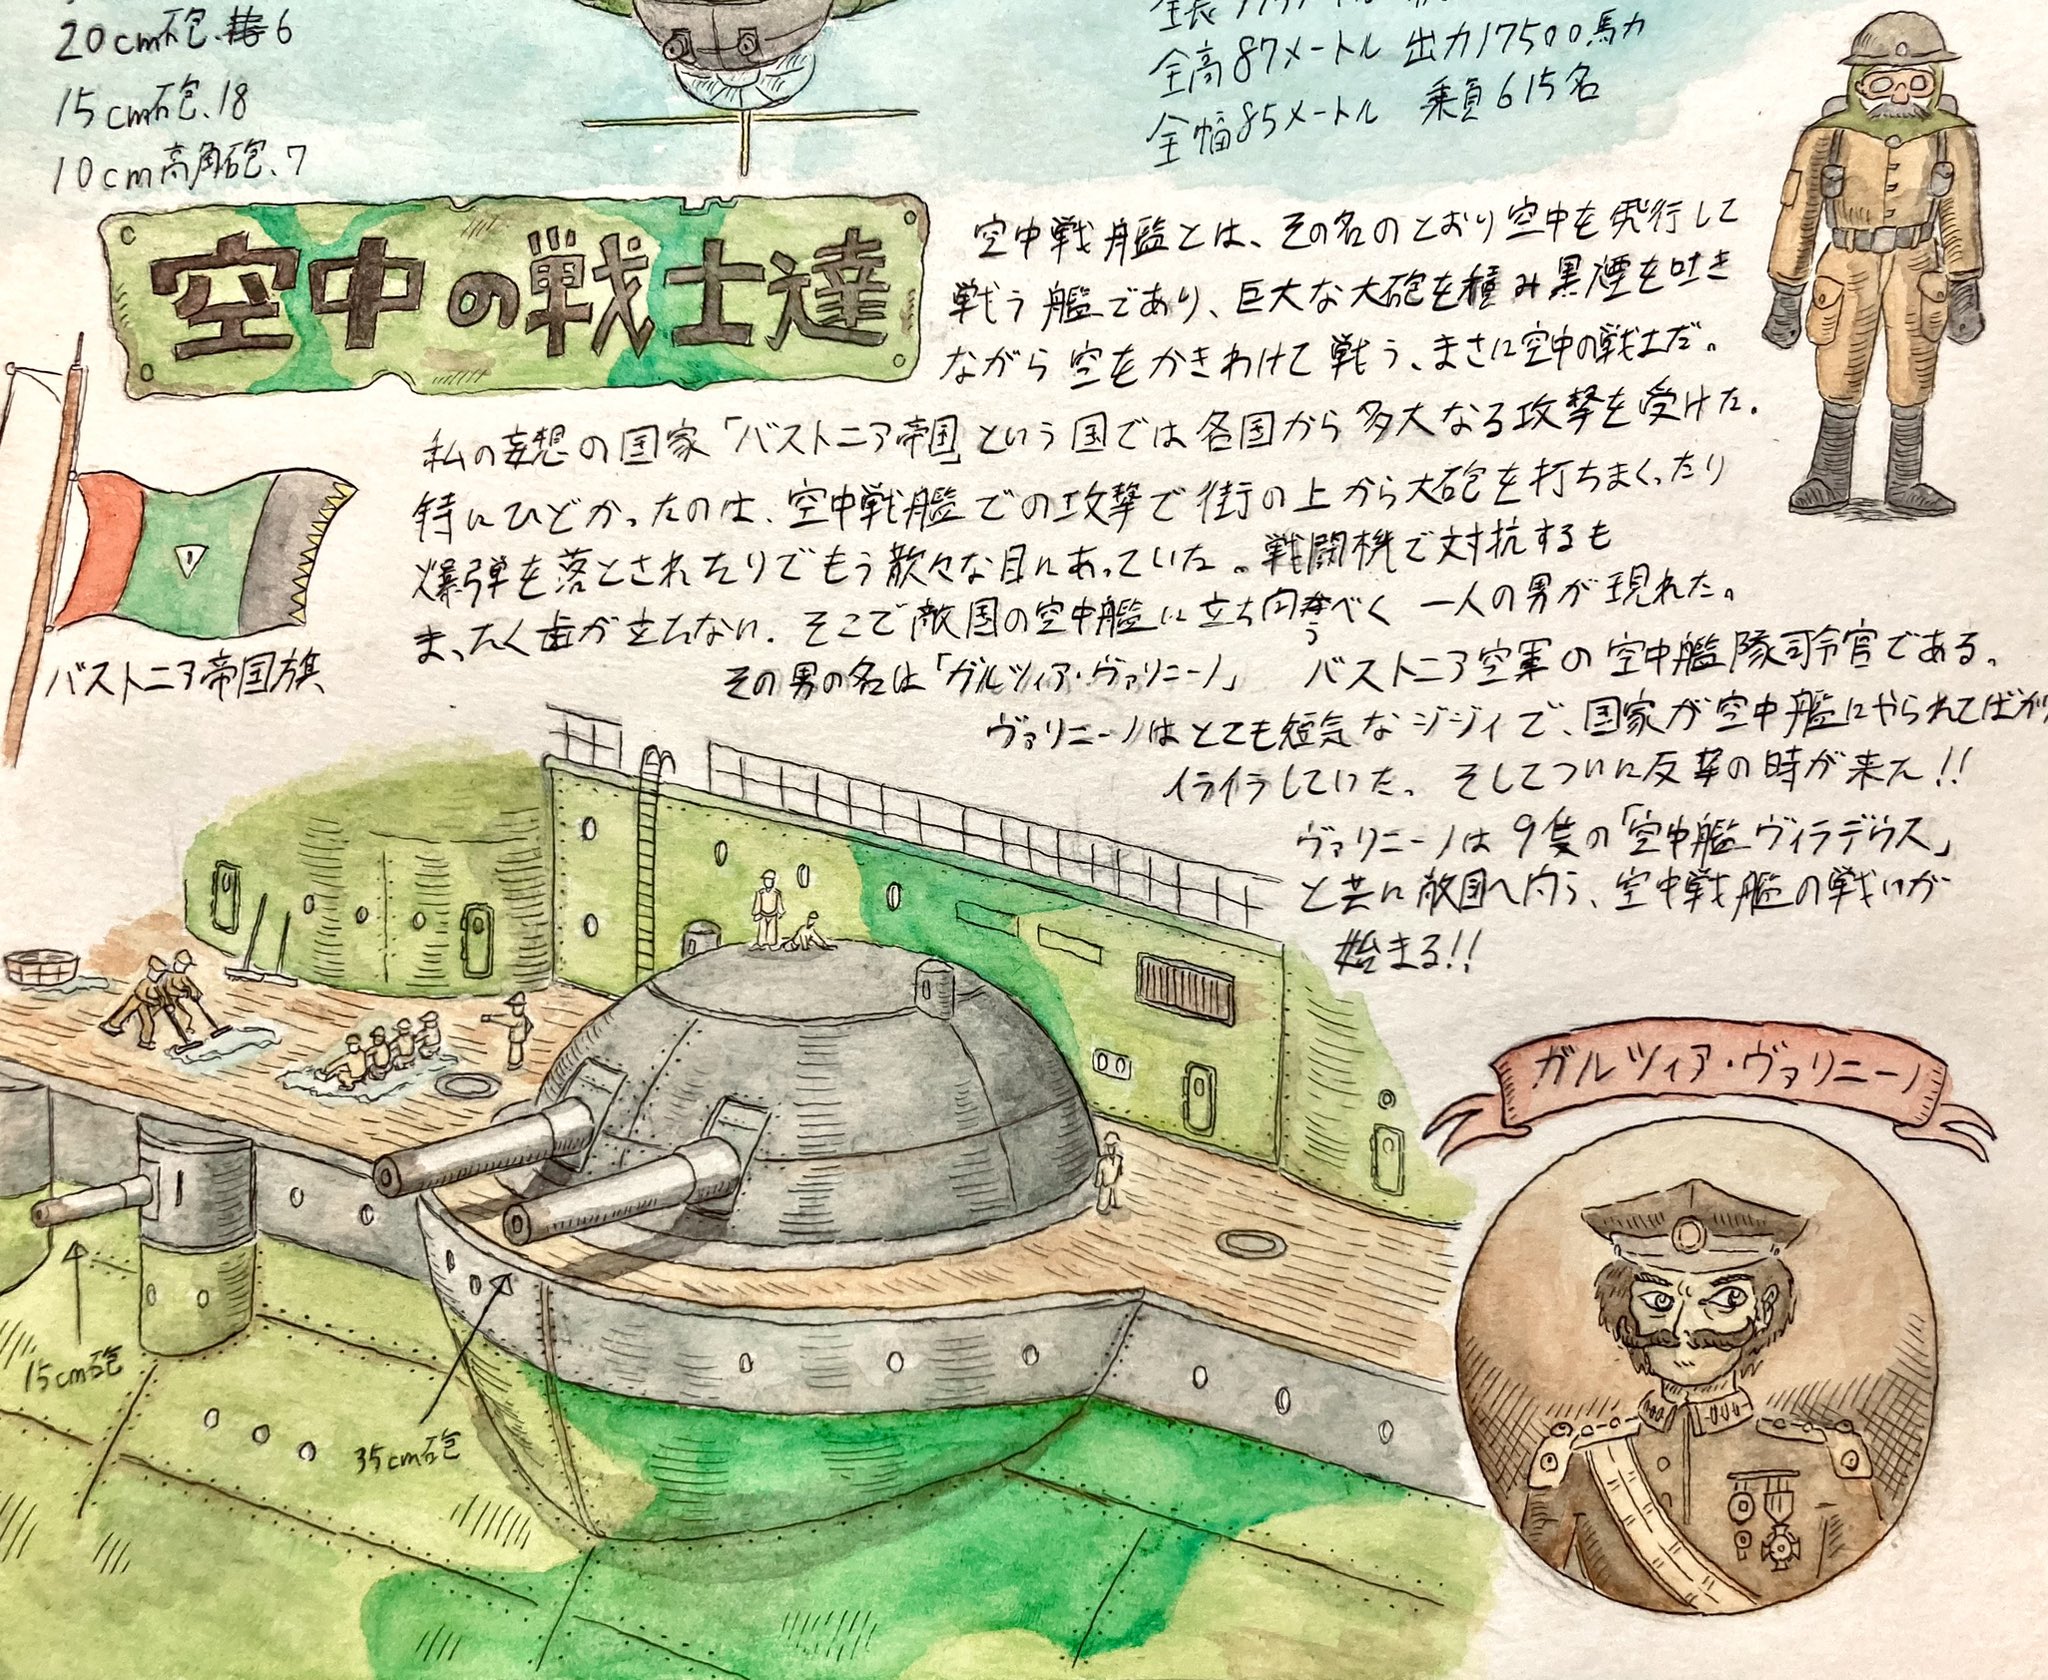 20cm砲、6
15cm砲、18
10cm高角砲、7
全高87メートル 出力17500馬力
全幅85メートル 乗員615名
空中の戦士達
空中戦艦とは、その名のとおり空中を飛行して
戦う艦であり、巨大な大砲を積み黒煙を吐き
ながら空をかきわけて戦う、まさに空中の戦士だ。
私の妄想の国家「バストニア帝国」という国では各国から多大なる攻撃を受けた.
特にひどかったのは、空中戦艦での攻撃で街の上から大砲を打ちまくったり
爆弾を落とされたりでもう散々な目にあっていた。戦闘機で対抗するも
まったく歯が立たない. そこで敵国の空中艦に立ち向うべく 一人の男が現れた。
その男の名は「ガルツィア・ヴァリニーノ」 バストニア空軍の空中艦隊司令官である。
ヴァリニーノはとても短気なジジィで、国家が空中艦にやられてばかり
イライラしていた。そしてついに反撃の時が来た!!
ヴァリニーノは9隻の「空中艦ヴィラデウス」
と共に敵国へ向う、空中戦艦の戦いが
始まる!!
バストニア帝国旗
ガルツィア・ヴァリニーノ
15cm砲
35cm砲